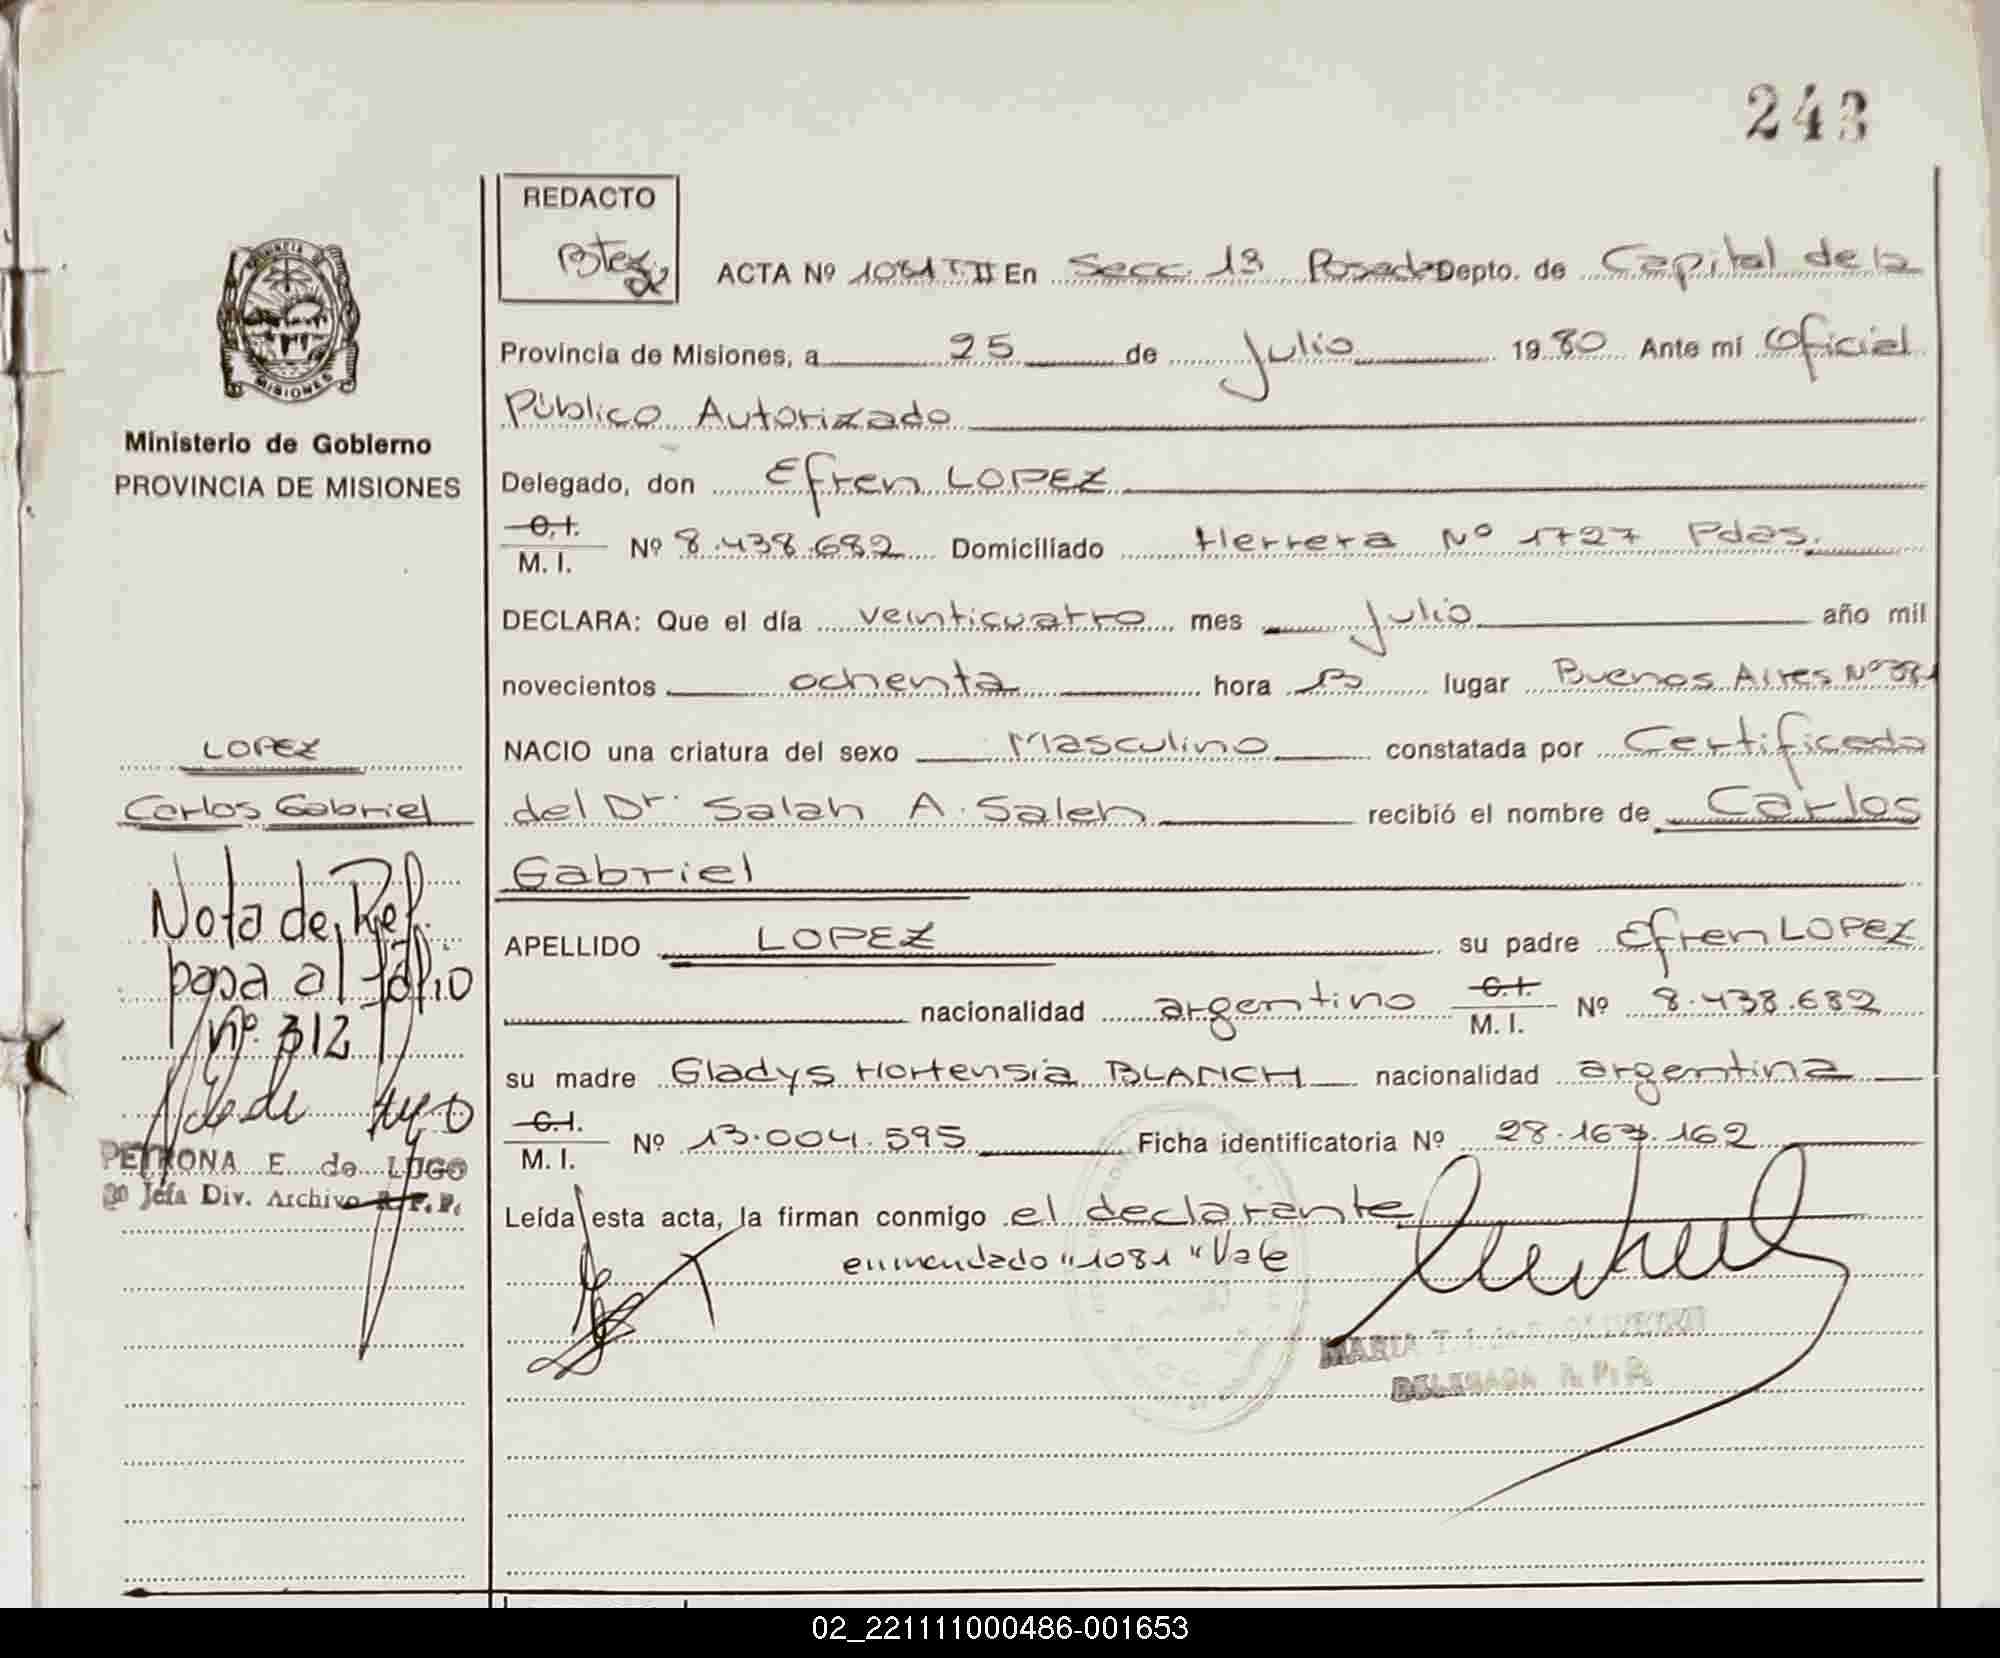 243
REDACTO
Btez
ACTA Nº 1081 T.II En Secc. 13 Posadas Depto. de Capital de la
Provincia de Misiones, a 25 de Julio 1980 Ante mí Oficial
Público Autorizado
Delegado, don Efren LOPEZ
C.I. M. I. Nº 8.438.682 Domiciliado Herrera Nº 1727 Pdas.
DECLARA: Que el día veinticuatro mes Julio año mil
novecientos ochenta hora 13 lugar Buenos Aires Nº
NACIO una criatura del sexo Masculino constatada por Certificado
del Dr. Salah A. Saleh recibió el nombre de Carlos
Gabriel
APELLIDO LOPEZ su padre Efren LOPEZ
nacionalidad argentino C.I. M. I. Nº 8.438.682
su madre Gladys Hortensia BLANCH nacionalidad argentina
C.I. M. I. Nº 13.004.595 Ficha identificatoria Nº 28.167.162
Leída esta acta, la firman conmigo el declarante
enmendado "1081" Vale
MARIA T.
DELEGADA R. P. P.
PROVINCIA DE
MISIONES
Ministerio de Gobierno
PROVINCIA DE MISIONES
LOPEZ
Carlos Gabriel
Nota de Ref.
pasa al folio
nº 312
PETRONA E. de LUGO
Jefa Div. Archivo R. P. P.
02_221111000486-001653